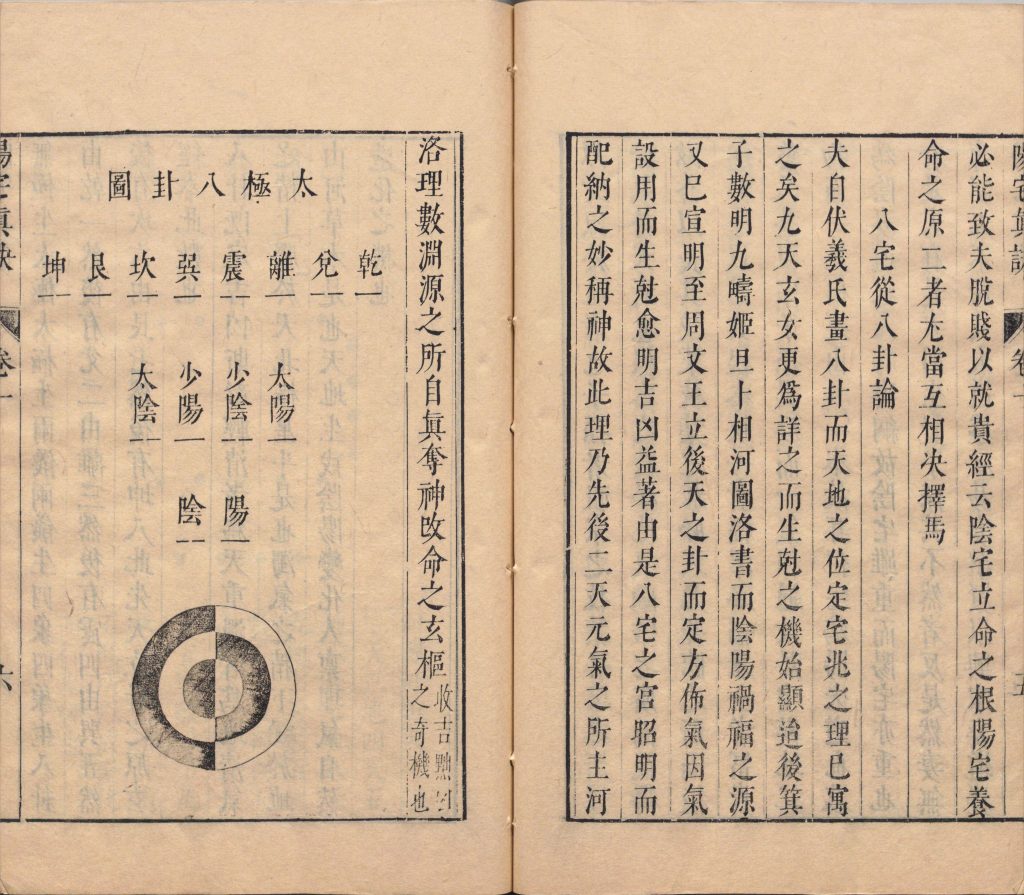 陽宅眞訣
卷一
五
必能致夫脫賤以就貴經云陰宅立命之根陽宅養
命之原二者尤當互相决擇焉
八宅從八卦論
夫自伏羲氏畫八卦而天地之位定宅兆之理已寓
之矣九天玄女更爲詳之而生尅之機始顯迨後箕
子數明九疇姬旦卜相河圖洛書而陰陽禍福之源
又巳宣明至周文王立後天之卦而定方佈氣因氣
設用而生尅愈明吉凶益著由是八宅之宮昭明而
配納之妙稱神故此理乃先後二天元氣之所主河
洛理數淵源之所自眞奪神改命之玄樞收吉
之奇機也
太極八卦圖
乾 兌 離 震 巽 坎 艮 坤
太陽 少陰 少陽 太陰
陽 陰
陽宅眞訣
卷一
六